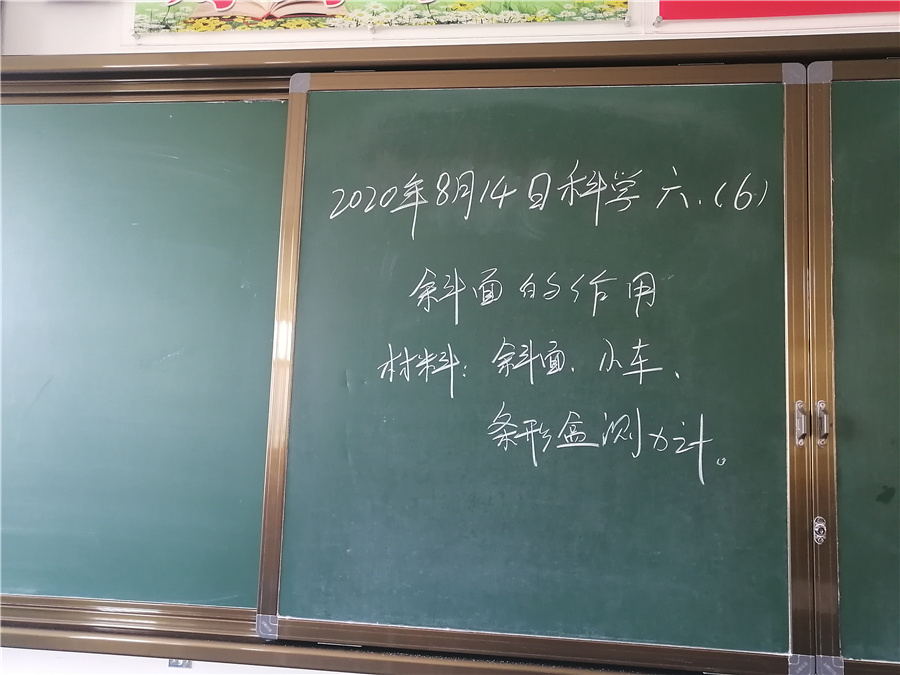 2020年8月14日科学 六.(6)
斜面的作用
材料：斜面、小车、
条形盒测力计。